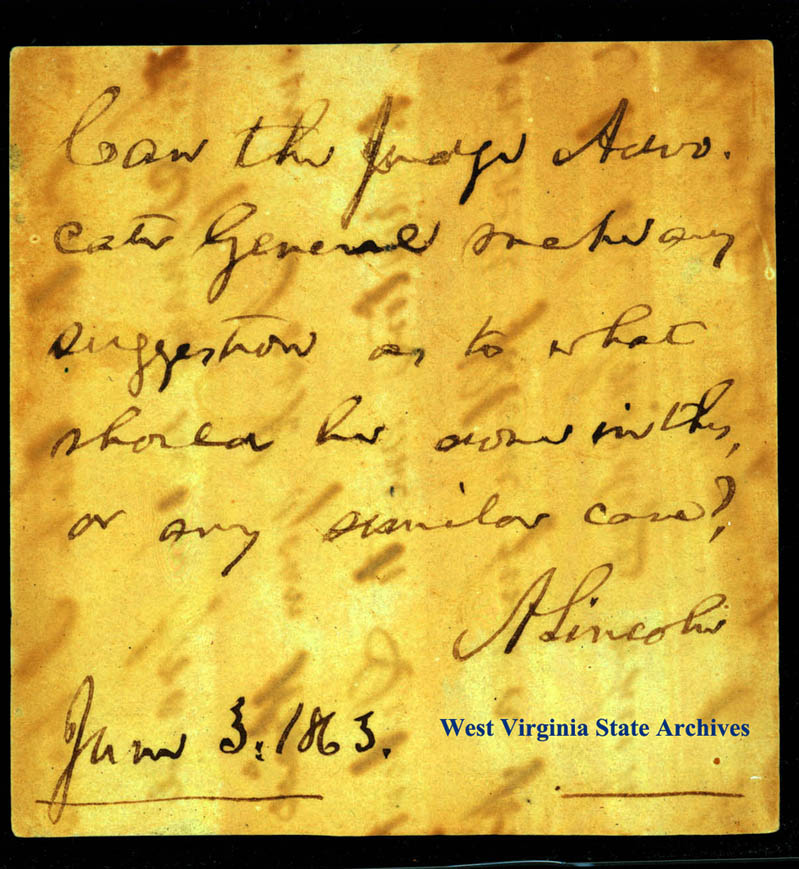 Can the Judge Advo.
cate General make any
suggestion as to what
should be done in this,
or any similar case?
A Lincoln
June 3, 1863.
West Virginia State Archives